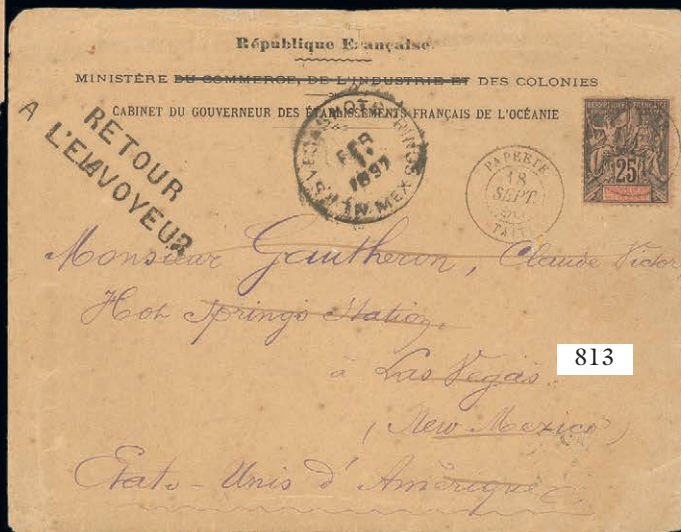 République Française.
MINISTÈRE DU COMMERCE, DE L'INDUSTRIE ET DES COLONIES
CABINET DU GOUVERNEUR DES ÉTABLISSEMENTS FRANÇAIS DE L'OCÉANIE
RETOUR
A L'ENVOYEUR
HOT SPRINGS
FEB
1897
N. MEX
PAPEETE
18
SEPT.
TAITI
RÉPUBLIQUE FRANÇAISE
25
Monsieur Gautheron, Claude Victor
Hot Springs Station,
à Las Vegas.
813
(New Mexico)
États-Unis d'Amérique